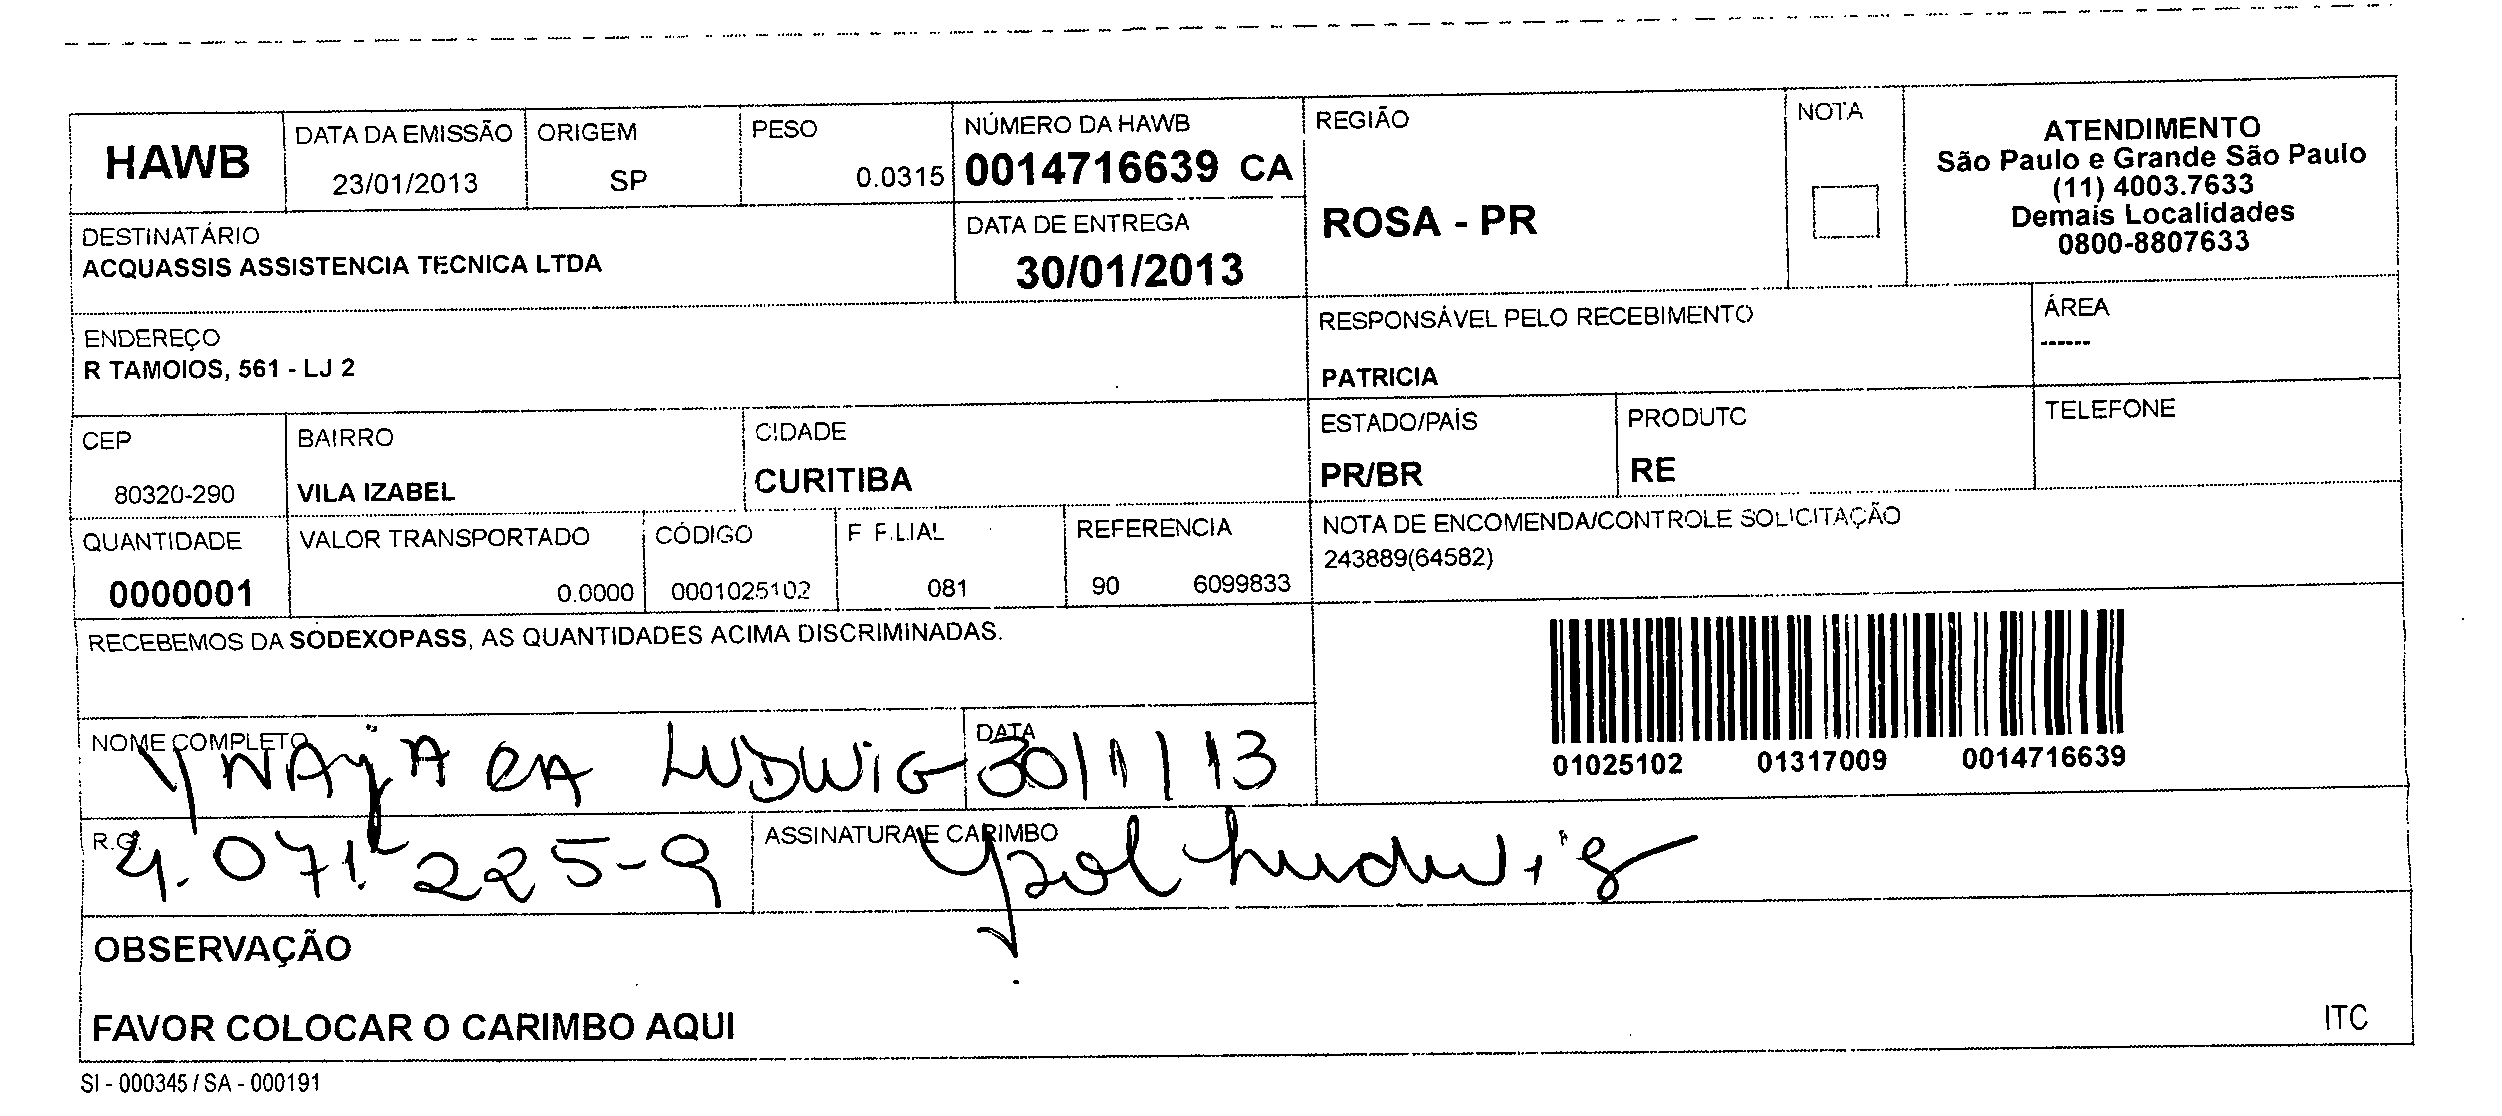 HAWB
DATA DA EMISSÃO
23/01/2013
ORIGEM
SP
PESO
0.0315
NÚMERO DA HAWB
0014716639 CA
REGIÃO
ROSA - PR
NOTA
ATENDIMENTO
São Paulo e Grande São Paulo
(11) 4003.7633
Demais Localidades
0800-8807633
DESTINATÁRIO
ACQUASSIS ASSISTENCIA TECNICA LTDA
DATA DE ENTREGA
30/01/2013
ENDEREÇO
R TAMOIOS, 561 - LJ 2
RESPONSÁVEL PELO RECEBIMENTO
PATRICIA
ÁREA
------
CEP
80320-290
BAIRRO
VILA IZABEL
CIDADE
CURITIBA
ESTADO/PAÍS
PR/BR
PRODUTC
RE
TELEFONE
QUANTIDADE
0000001
VALOR TRANSPORTADO
0.0000
CÓDIGO
0001025102
F F.LIAL
081
REFERENCIA
90 6099833
NOTA DE ENCOMENDA/CONTROLE SOLICITAÇÃO
243889(64582)
RECEBEMOS DA SODEXOPASS, AS QUANTIDADES ACIMA DISCRIMINADAS.
01025102 01317009 0014716639
NOME COMPLETO
YNAJARA LUDWIG
DATA
30/1/13
R.G.
4.071.225-9
ASSINATURA E CARIMBO
Ludwig
OBSERVAÇÃO
FAVOR COLOCAR O CARIMBO AQUI
ITC
SI - 000345 / SA - 000191